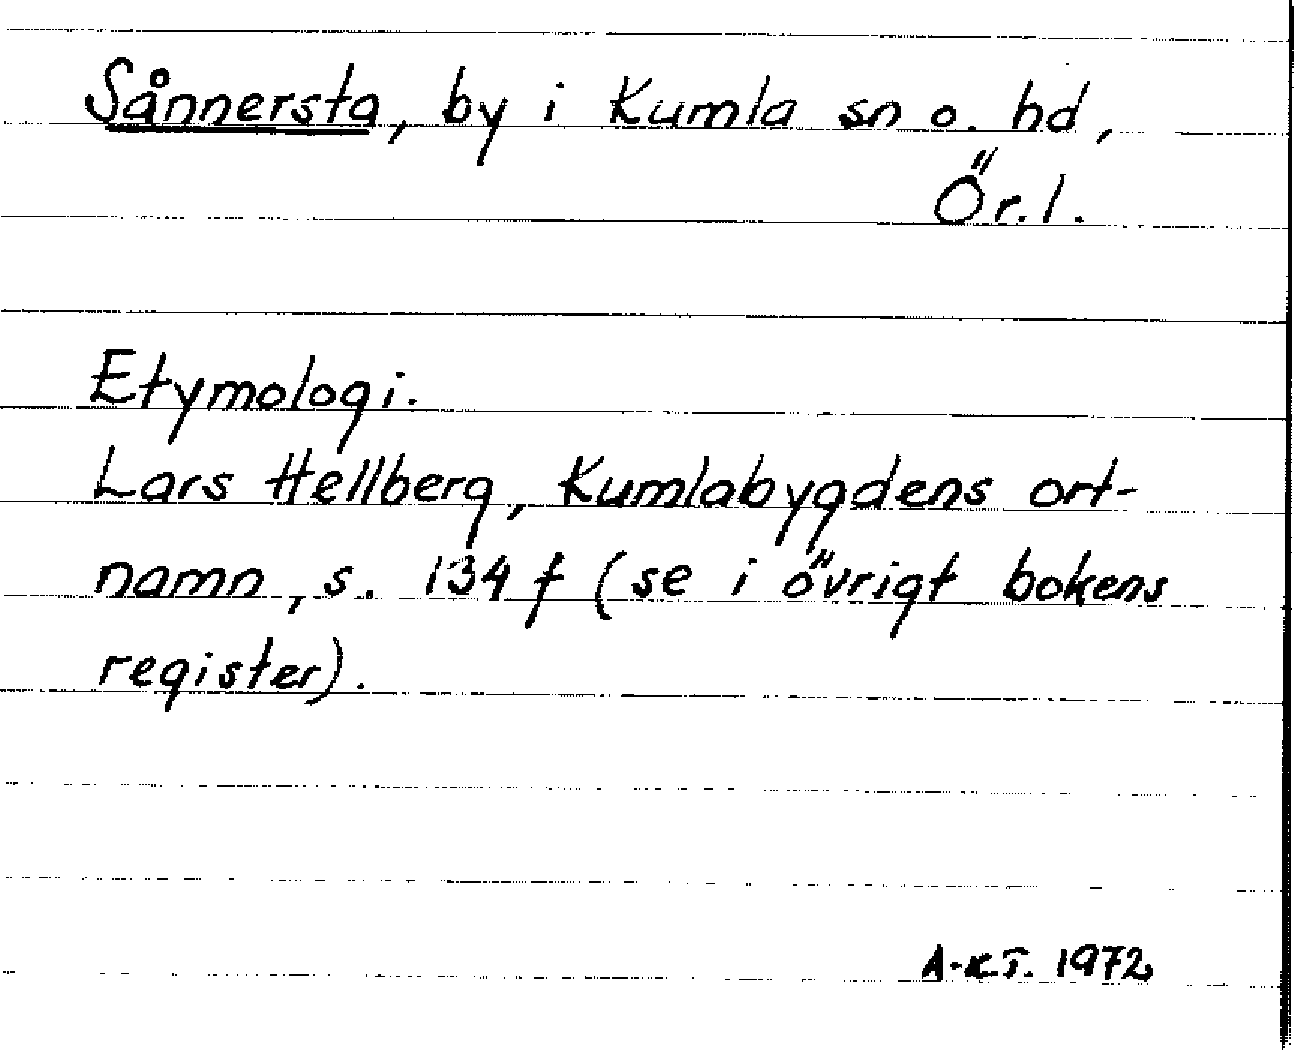 Sånnersta, by i Kumla sn o. hd,
Ör. l.
Etymologi.
Lars Hellberg, Kumlabygdens ort-
namn, s. 134 f (se i övrigt bokens
register).
A-K T. 1972